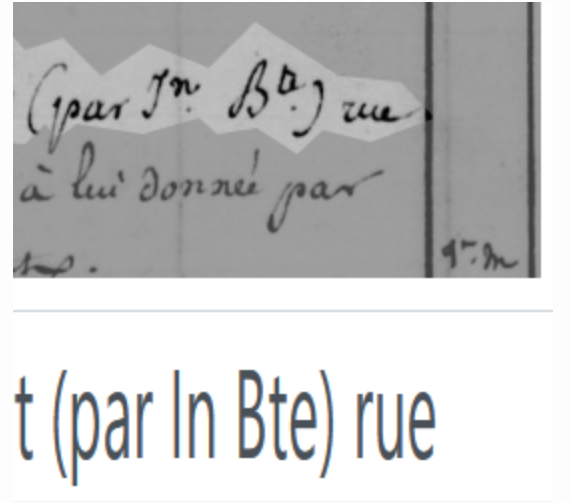 (par Jn. Bte.) rue
à lui donnée par
t (par In Bte) rue